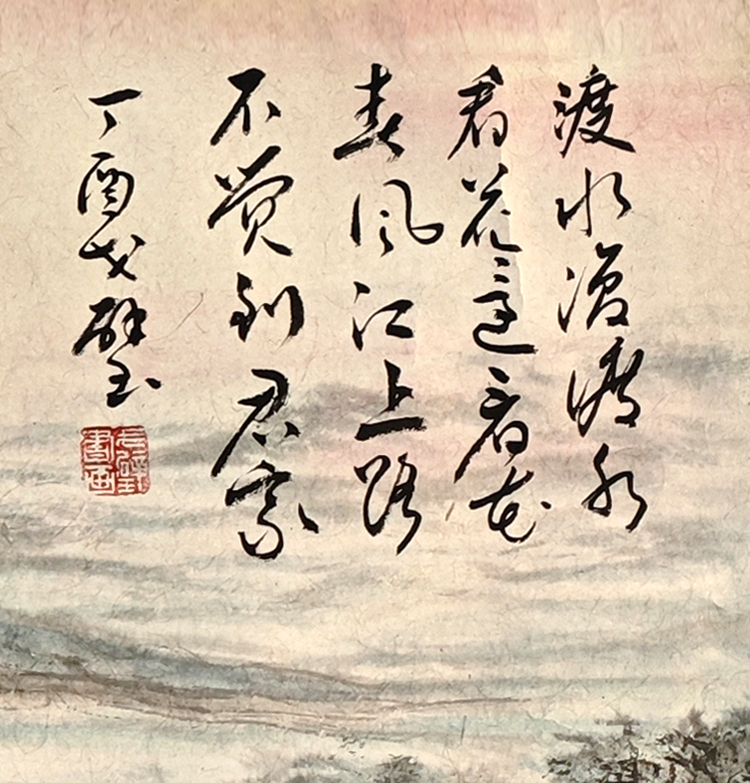 渡水復渡水
看花還看花
春風江上路
不覺到君家
丁酉戈璧
戈璧書画